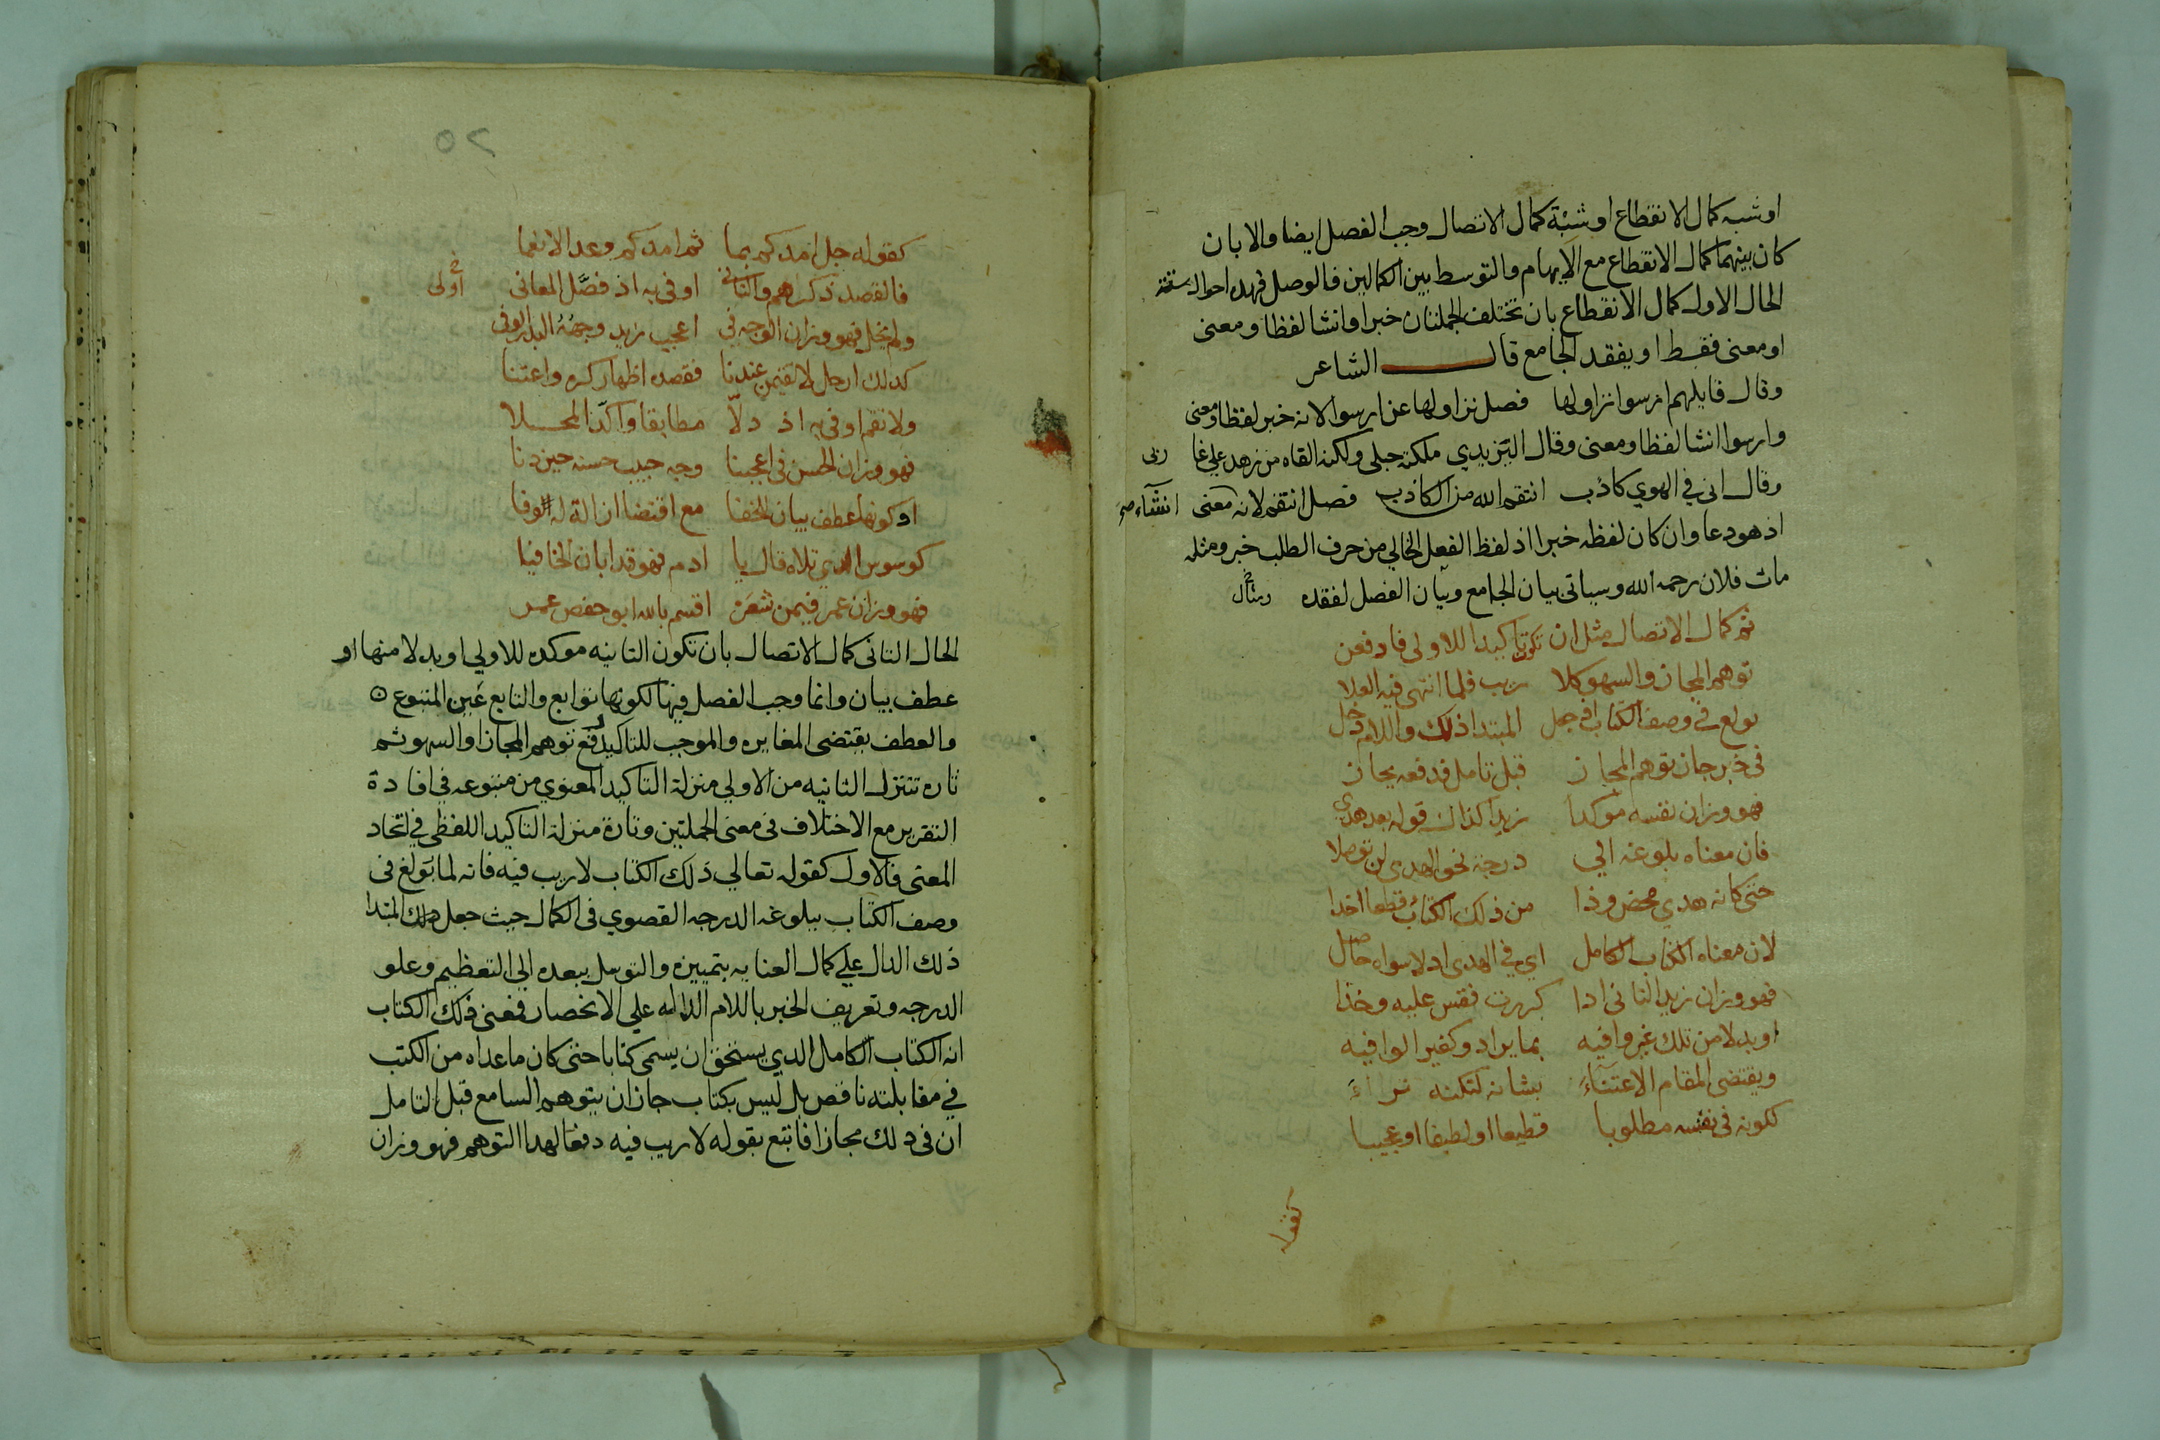 او شبه كمال الانقطاع او شبة كمال الاتصال وجب الفصل ايضا والا بان
كان بينهما كمال الانقطاع مع الايهام والتوسط بين الكمالين فالوصل فهده احوال ستة
الحال الاول كمال الانقطاع بان تختلف الجملتان خبرا وانشا لفظا ومعنى
او معنى فقط او يفقد الجامع قال الشاعر
وقال قايلهم ارسوا نزاولها فصل نزاولها عن ارسوا لانه خبر لفظا ومعنى
وارسوا انشا لفظا ومعنى وقال اليزيدي ملكته حبلي ولكنه القاه من زهد علي غا ربى
وقال انى في الهوي كاذب انتقم الله من الكاذب فصل انتقم لانه معنى انشاء صح
اذ هو دعا وان كان لفظه خبرا اذ لفظ الفعل الخالي من حرف الطلب خبر ومثله
مات فلان رحمه الله وسياتى بيان الجامع وبيان الفصل لفقده
ثم كمال الاتصال مثل ان تكون تاكيدا للاولى فاد فعن
توهم المجاز والسهو كلا ريب فلما انتهى فيه العلا
بولغ في وصف الكتاب اذ جعل المبتدا ذلك واللام دخل
فى خبر جاز توهم المجاز قبل تامل فدفعه يجاز
فهو وزان نفسه موكدا زيدا كذاك قوله بعد هدى
فان معناه بلوغه الي درجة نحو الهدى لن توصلا
حتى كانه هدي محض وذا من ذلك الكتاب قطعا اخدا
لان معناه الكتاب الكامل اي في الهدى اد لا سواه حاصل
فهو وزان زيد الثانى اذا كررت فقس عليه وخذا
او بدلا من تلك غير وافيه بما يراد وكغير الوافيه
ويقتضى المقام الاعتناء بشانه لنكتة تراءَ
ككونه فى نفسه مطلوبا فظيعا او لطيفا او عجيبا
كقوله
٢٥
كقوله جل امدكم بما ثم امدكم وعد الانعما
فالقصد ذكرهم والثانى اوفى به اذ فصَّل المعانى اولى
ولم يخل فهو وزان الوجه فى اعجب زيد وجهُهُ البدر الوفى
كدلك ارحل لا تقيمن عندنا فقصده اظهار كره واعتنا
ولا تقم اوفى به اذ دلّا مطابقا واكّد المحلا
فهو وزان الحسن فى اعجبنا وجه حبيب حسنه حين دنا
او كونها عطف بيان للخفا مع اقتضا ازالة له الوفا
كوسوس الدي تلاه قال يا ادم فهو قد ابان الخافيا
فهو وزان عمر فيمن شعَرَ اقسم بالله ابو حفص عمر
الحال الثانى كمال الاتصال بان تكون الثانيه موكده للاولي او بدلا منها او
عطف بيان وانما وجب الفصل فيها لكونها توابع والتابع عَين المتبوع
والعطف يقتضى المغايره والموجب للتاكيد دفع توهم المجاز او السهو ثم
تاره تنزل الثانيه من الاولي منزلة التاكيد المعنوي من متبوعه في افادة
التقرير مع الاختلاف فى معنى الجملتين وتارة منزلة التاكيد اللفظى في اتحاد
المعنى فالاول كقوله تعالي ذلك الكتاب لا ريب فيه فانه لما بَولغ فى
وصف الكتاب ببلوغه الدرجه القصوي فى الكمال حيث جعل المبتدا
ذلك الدال علي كمال العنايه بتمييزه والتوسل ببعده الي التعظيم وعلو
الدرجه وتعريف الخبر باللام الداله علي الانحصار فمعنى ذلك الكتاب
انه الكتاب الكامل الدي يستحق ان يسمى كتابا حتى كان ما عداه من الكتب
في مقابلته ناقص بل ليس بكتاب جاز ان يتوهم السامع قبل التامل
ان فى دلك مجازا فاتبع بقوله لا ريب فيه دفعا لهدا التوهم فهو وزان